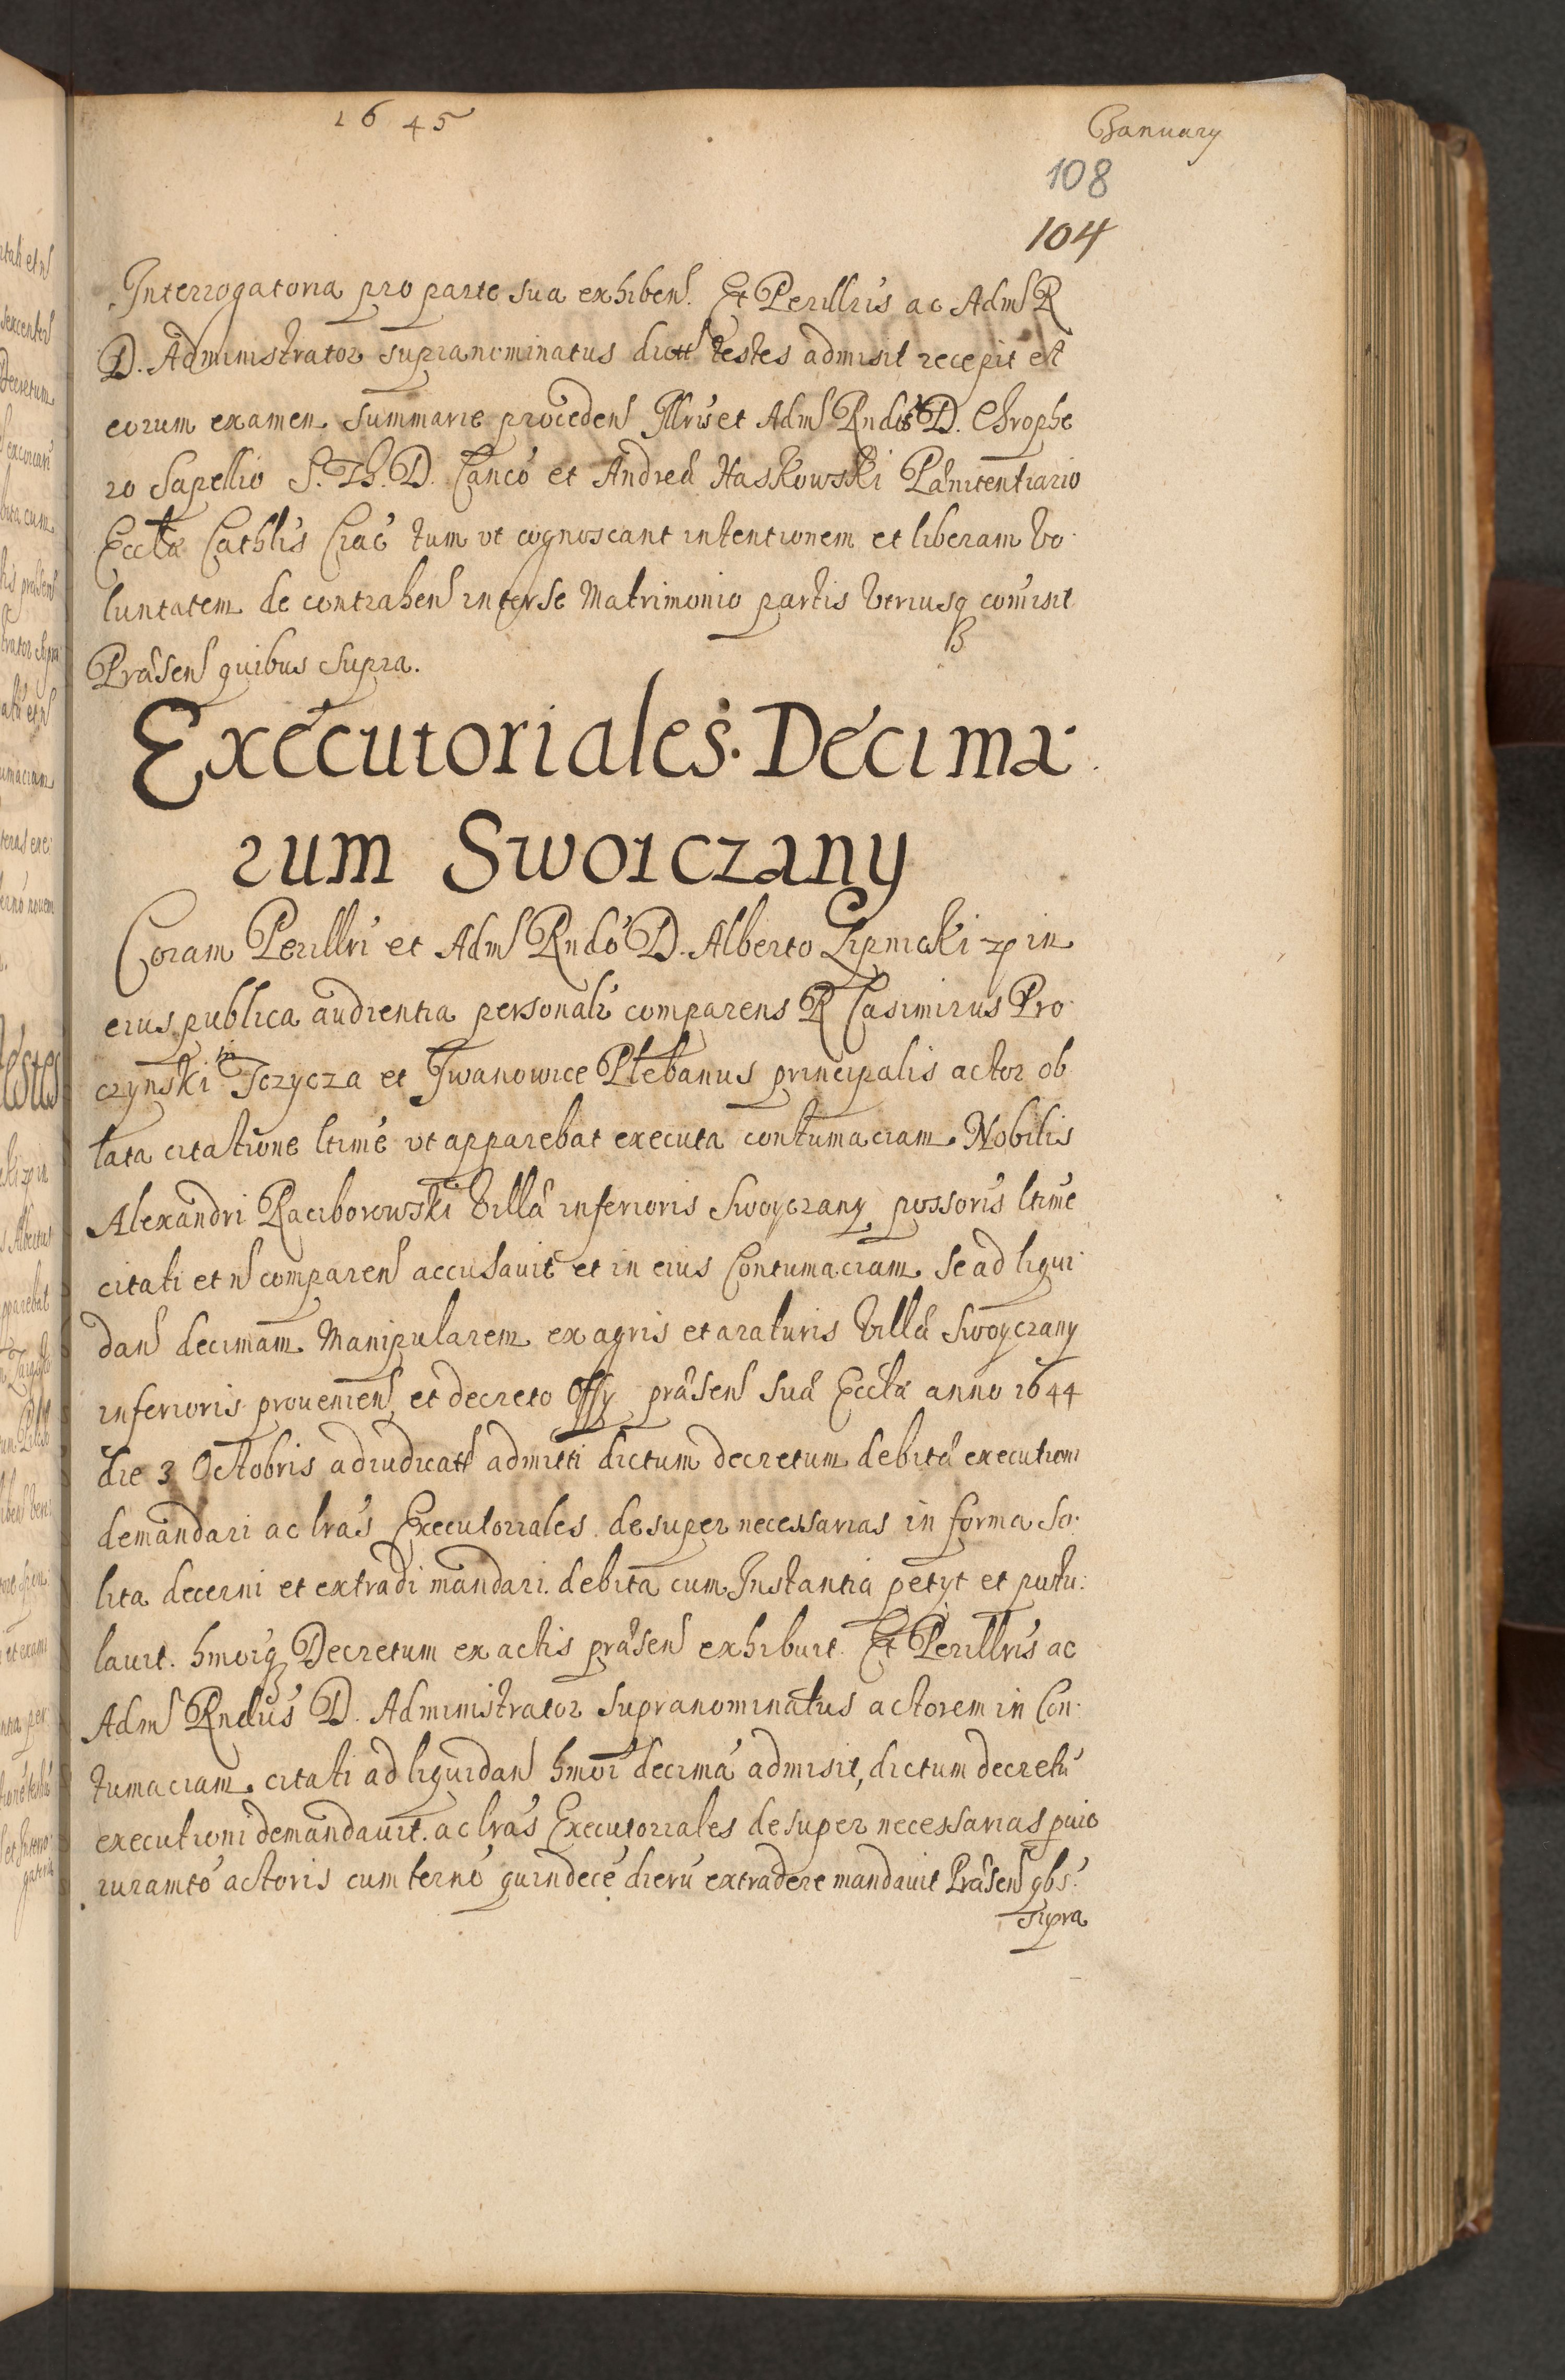 1645
January
108
104
Interrogatoria pro parte sua exhiben. Et Perillris ac Adm R
D. Administrator supranominatus dictt testes admisit recepit et
eorum examen summarie proceden Illris et Adm Rndis D. Chrophe
ro Sapellio S. Th. D. Canco et Andreæ Haskowski Pænitentiario
Eccłæ Cathlis Crac tum ut cognoscant intentionem et liberam vo
luntatem de contrahen inter se Matrimonio partis utriusq comisit
Præsen quibus supra.
Executoriales Decima
rum Swoiczany
Coram Perillri et Adm Rndo D. Alberto Lipnicki zp in
eius publica audientia personalr comparens R Casimirus Pro
czynski in Tczycza et Iwanowice Plebanus principalis actor ob
lata citatione ltime ut apparebat executa contumaciam Nobilis
Alexandri Raciborowski villæ inferioris Swoyczany possoris ltime
citati et n comparen accusavit et in eius Contumaciam se ad liqui
dan decimam Manipularem ex agris et araturis villæ Swoyczany
inferioris provenien et decreto Offy præsen suæ Eccłæ anno 1644
die 3 Octobris adiudicatt admitti dictum decretum debitæ executioni
demandari ac lras Executoriales desuper necessarias in forma so
lita decerni et extradi mandari debita cum Instantia petyt et postu
lavit. hmoiq Decretum ex actis præsen exhibuit. Et Perillris ac
Adm Rndus D. Administrator supranominatus actorem in Con
tumaciam citati ad liquidan hmoi decimã admisit, dictum decretũ
executioni demandavit. ac lras Executoriales desuper necessarias pvio
iuramto actoris cum terno quindecẽ dierũ extradere mandavit Præsen qbs
supra